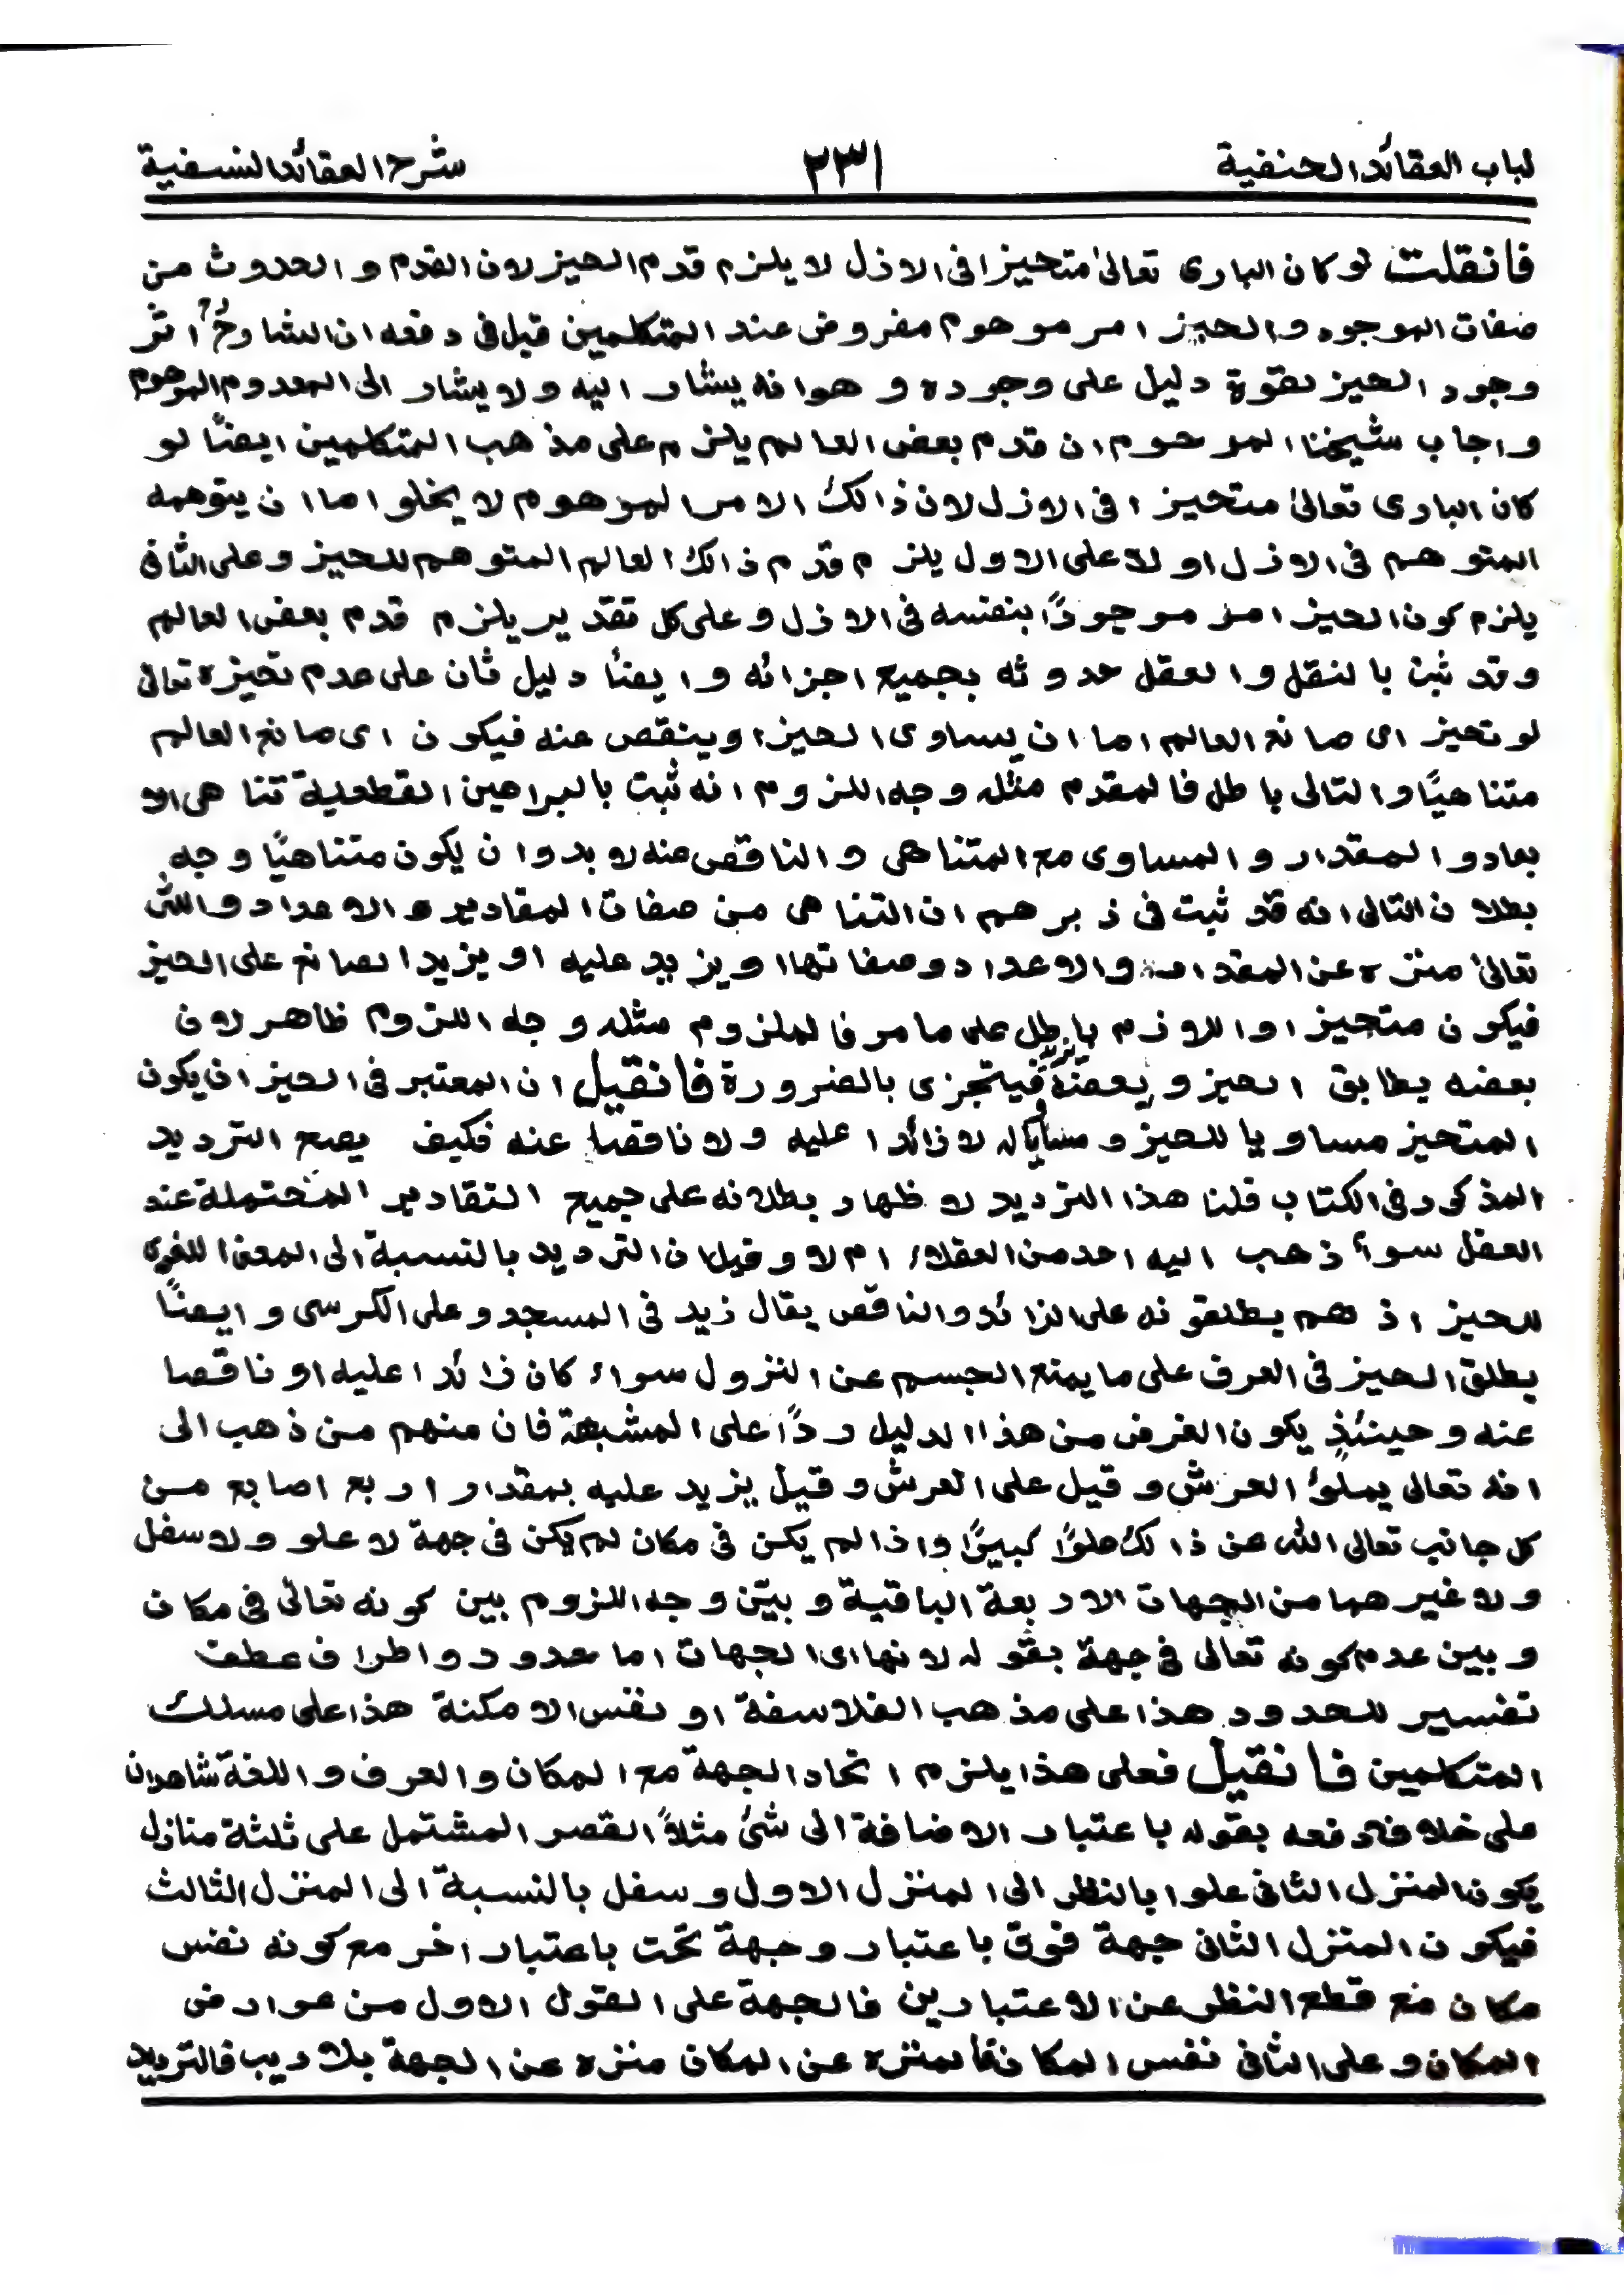 لباب العقائد الحنفية ٢٣١ شرح العقائد النسفية
فانقلت لو كان البارى تعالىٰ متحيزا فى الازل لا يلزم قدم الحيز لان القدم والحدوث من
صفات الموجود والحيز امر موهوم مفروض عند المتكلمين قبل فى دفعه ان الشارح اثر
وجود الحيز لقوة دليل على وجوده وهو انه يشار اليه ولا يشار الى المعدوم الموهوم
واجاب شيخنا المرحوم ان قدم بعض العالم يلزم على مذهب المتكلمين ايضًا لو
كان البارى تعالىٰ متحيزا فى الازل لان ذالك الامر الموهوم لا يخلوا اما ان يتوهمه
المتوهم فى الازل او لا على الاول يلزم قدم ذالك العالم المتوهم للحيز وعلى الثانى
يلزم كون الحيز امر موجودًا بنفسه فى الازل وعلى كل تقدير يلزم قدم بعض العالم
وقد ثبت بالنقل والعقل حدوثه بجميع اجزائه وايضًا دليل ثان على عدم تحيزه تعالى
لو تحيز اى صانع العالم اما ان يساوى الحيز اوينقص عنه فيكون اى صانع العالم
متناهيًا والتالى باطل فالمقدم مثله وجه اللزوم انه ثبت بالبراهين القطعية تناهى الا
بعاد والمقدار والمساوى مع المتناهى والناقص عنه لا بد وان يكون متناهيًا وجه
بطلان التالى انه قد ثبت فى زبرهم ان التناهى من صفات المقادير والاعداد والله
تعالىٰ منزه عن المقدار والاعداد وصفاتها اويزيد عليه او يزيد الصانع على الحيز
فيكون متحيزا واللازم باطل على ما مر فالملزوم مثله وجه اللزوم ظاهر لان
بعضه يطابق الحيز وبعضه يزيد فيتجزى بالضرورة فانقيل ان المعتبر فى الحيز ان يكون
المتحيز مساويا للحيز و له لا زائدا عليه ولا ناقصا عنه فكيف يصح الترديد
المذكور فى الكتاب قلنا هذا الترديد لاظهار بطلانه على جميع التقادير المحتملة عند
العقل سوأ ذهب اليه احد من العقلاء ام لا وقيل ان الترديد بالنسبة الى المعنى اللغوى
للحيز اذ هم يطلقونه على الزائد والناقص يقال زيد فى المسجد وعلى الكرسى وايضًا
يطلق الحيز فى العرف على ما يمنع الجسم عن النزول سواء كان زائدا عليه او ناقصا
عنه وحينئذٍ يكون الغرض من هذا الدليل ردًا على المشبهة فان منهم من ذهب الى
انه تعالى يملؤ العرش وقيل على العرش وقيل يزيد عليه بمقدار اربع اصابع من
كل جانب تعالى الله عن ذالك علوًا كبيرًا واذا لم يكن فى مكان لم يكن فى جهة لا علو ولا سفل
ولا غيرهما من الجهات الاربعة الباقية وبيّن وجه اللزوم بين كونه تعالىٰ فى مكان
وبين عدم كونه تعالى فى جهة بقوله لانها اى الجهات اما حدود واطراف عطف
تفسير للحدود هذا على مذهب الفلاسفة او نفس الامكنة هذا على مسلك
المتكلمين فانقيل فعلى هذا يلزم اتحاد الجهة مع المكان والعرف واللغة شاهدان
على خلافه دفعه بقوله باعتبار الاضافة الى شئ مثلاً القصر المشتمل على ثلثة منازل
يكون المنزل الثانى علوا بالنظر الى المنزل الاول وسفل بالنسبة الى المنزل الثالث
فيكون المنزل الثانى جهة فوق باعتبار وجهة تحت باعتبار اخر مع كونه نفس
مكان مع قطع النظر عن الاعتبارين فالجهة على القول الاول من عوارض
المكان وعلى الثانى نفس المكان فالمنزه عن المكان منزه عن الجهة بلا ريب فالترديد